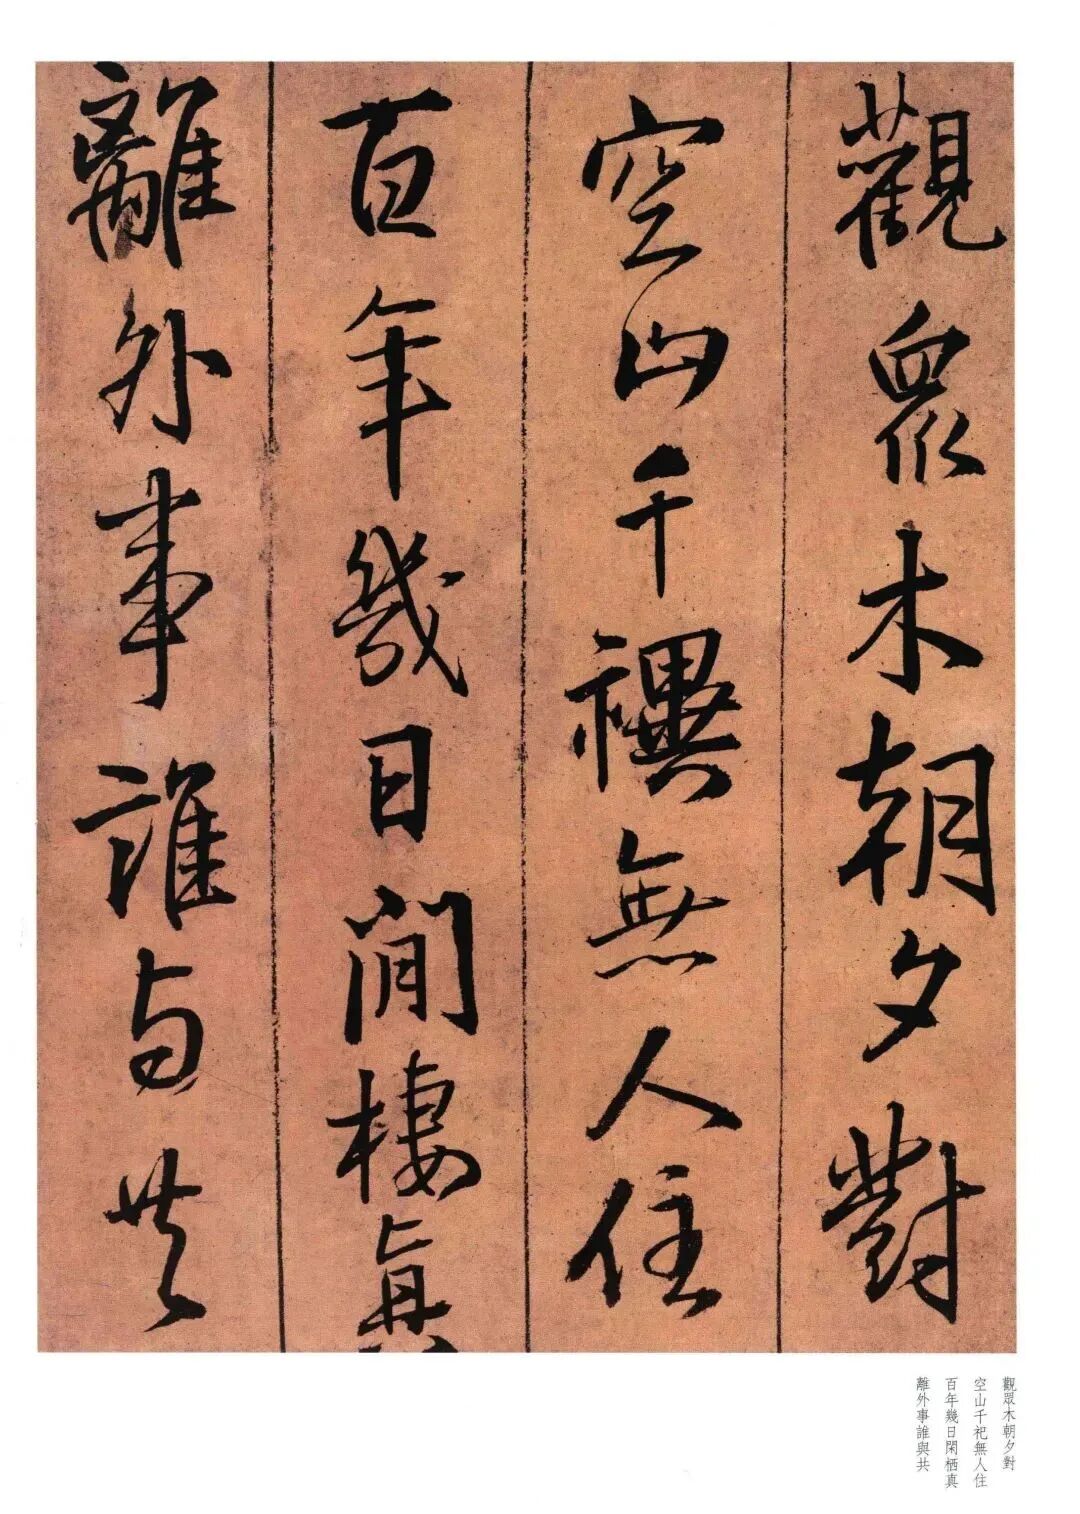 觀眾木朝夕對
空山千禩無人住
百年幾日閒棲真
離外事誰与共
觀眾木朝夕對
空山千祀無人住
百年幾日閑栖真
離外事誰與共